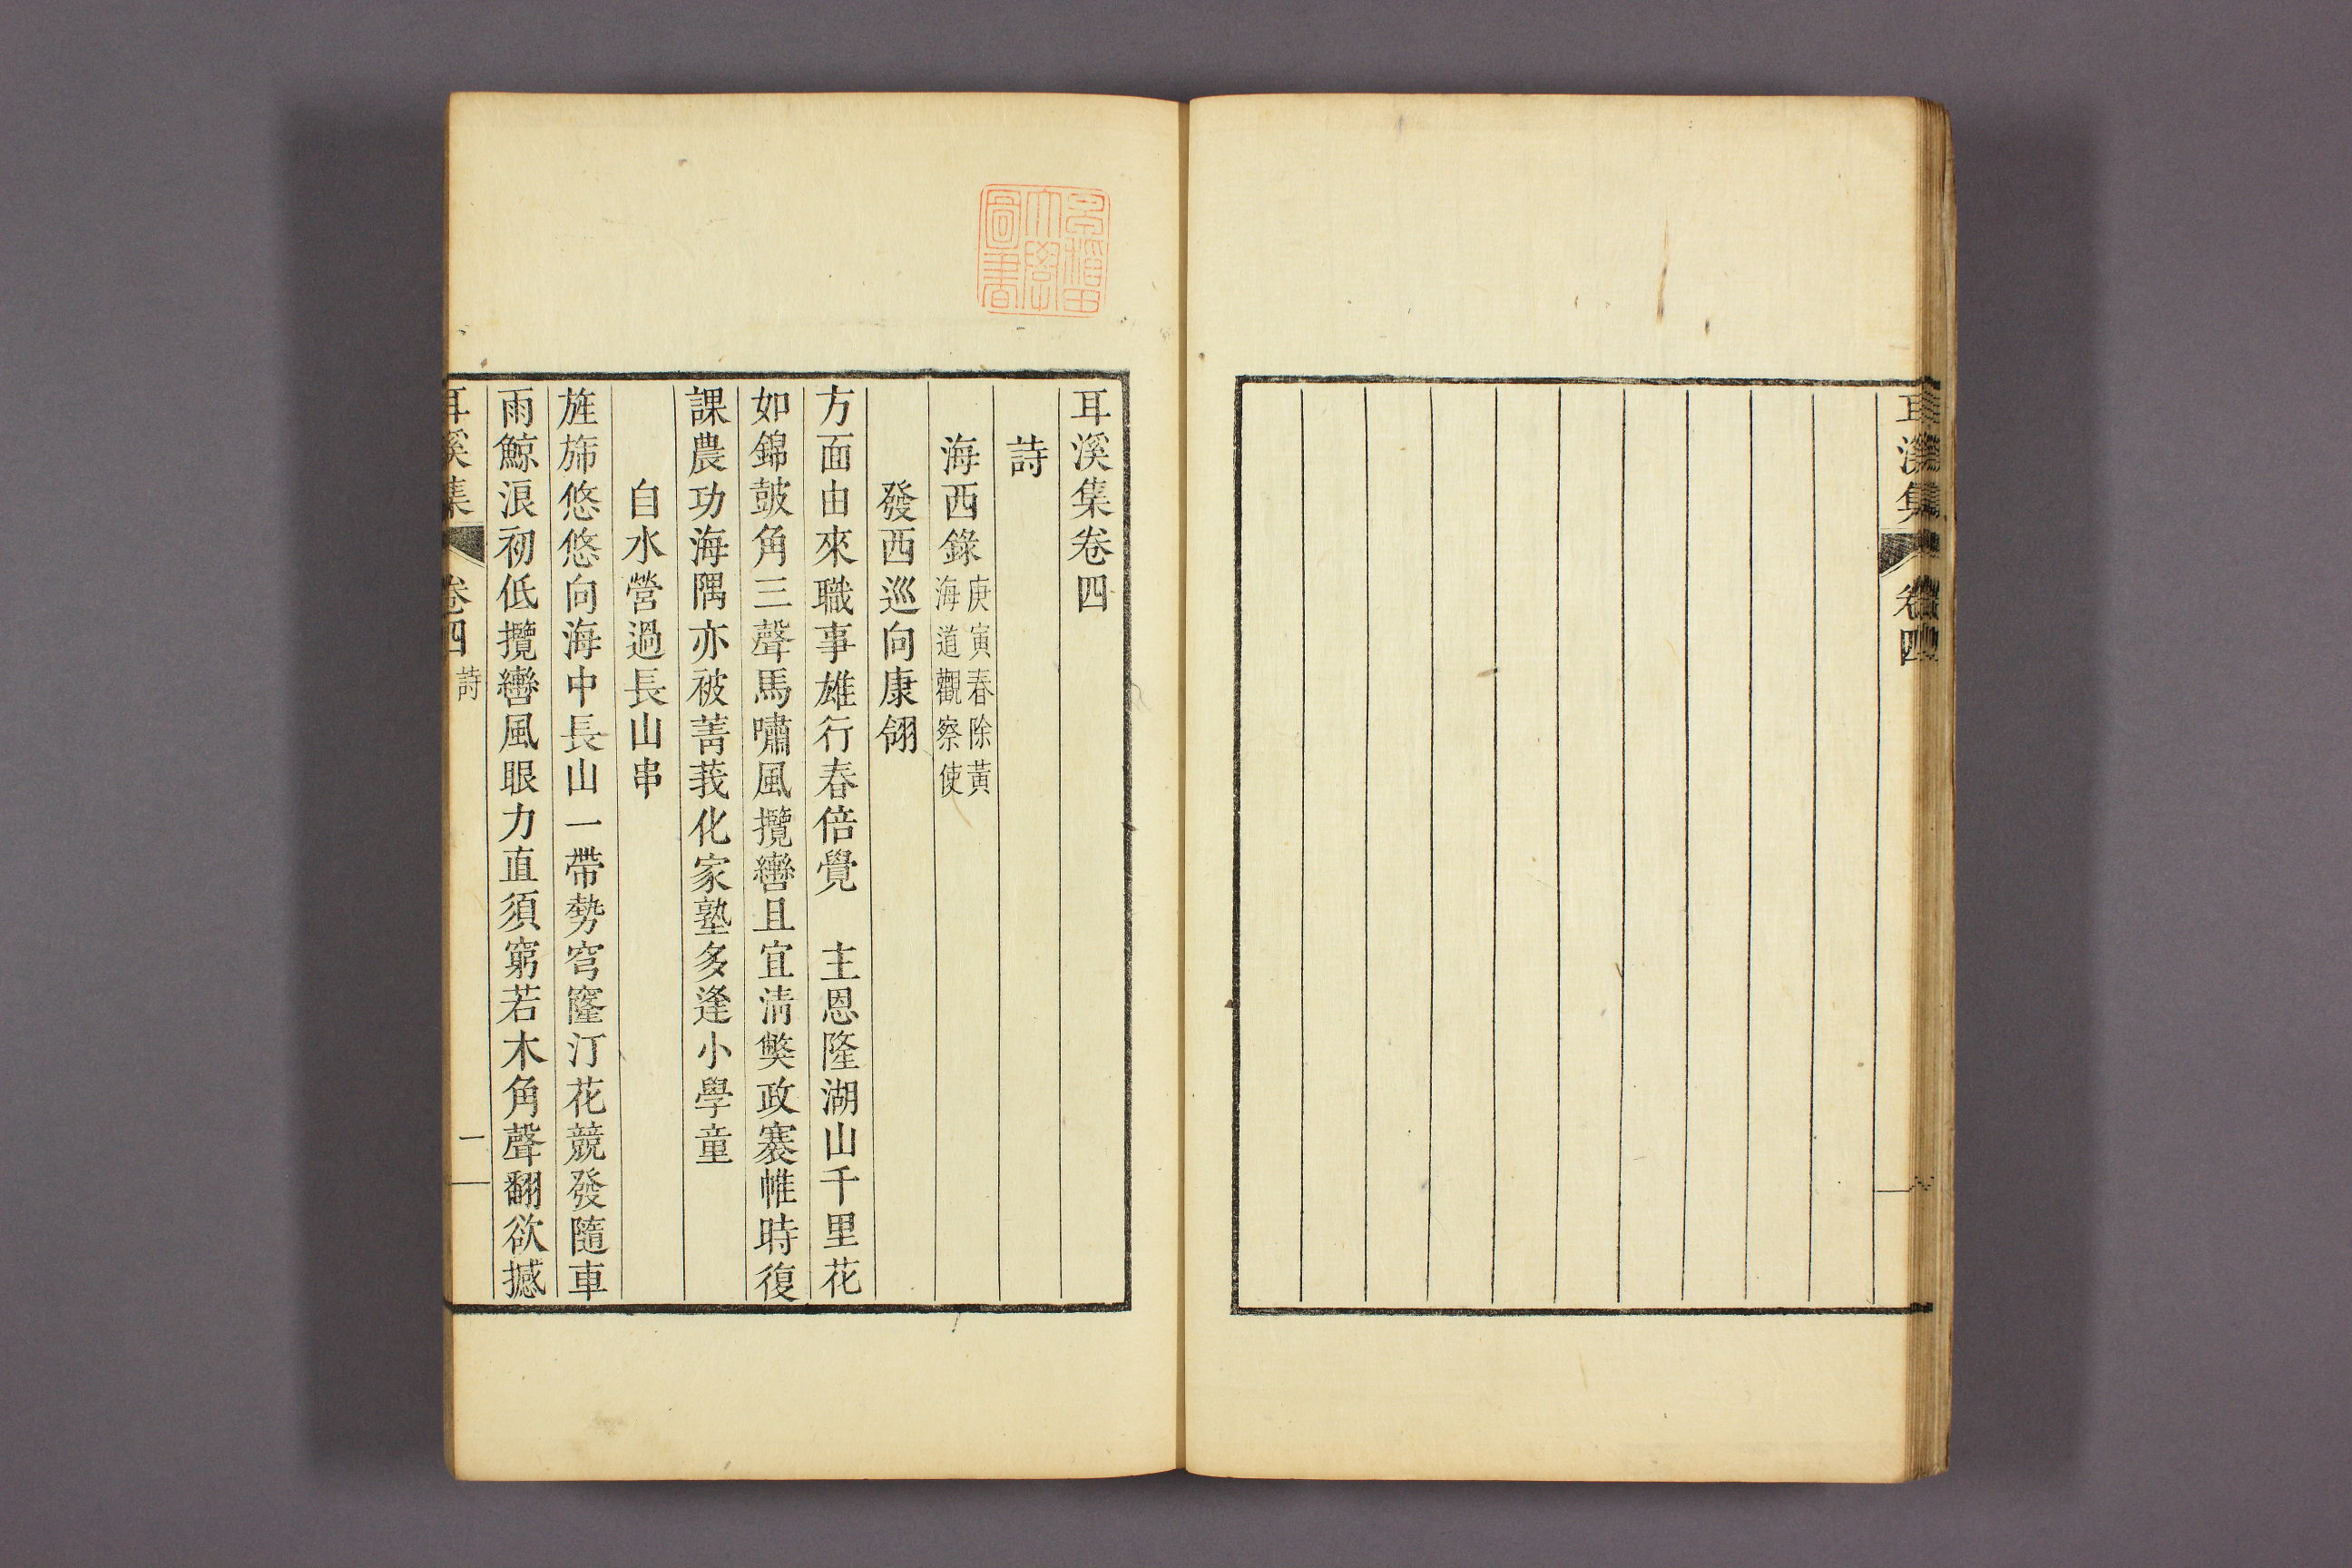 耳溪集 卷四
耳溪集卷四
詩
海西錄 庚寅春除黃
海道觀察使
發西巡向康翎
方面由來職事雄行春倍覺 主恩隆湖山千里花
如錦皷角三聲馬嘯風攬轡且宜淸獘政褰帷時復
課農功海隅亦被菁莪化家塾多逢小學童
自水營過長山串
旌旆悠悠向海中長山一帶勢穹窿汀花競發隨車
雨鯨浪初低攬轡風眼力直須窮若木角聲翻欲撼
耳溪集 卷四 詩 一
早稻田大學圖書